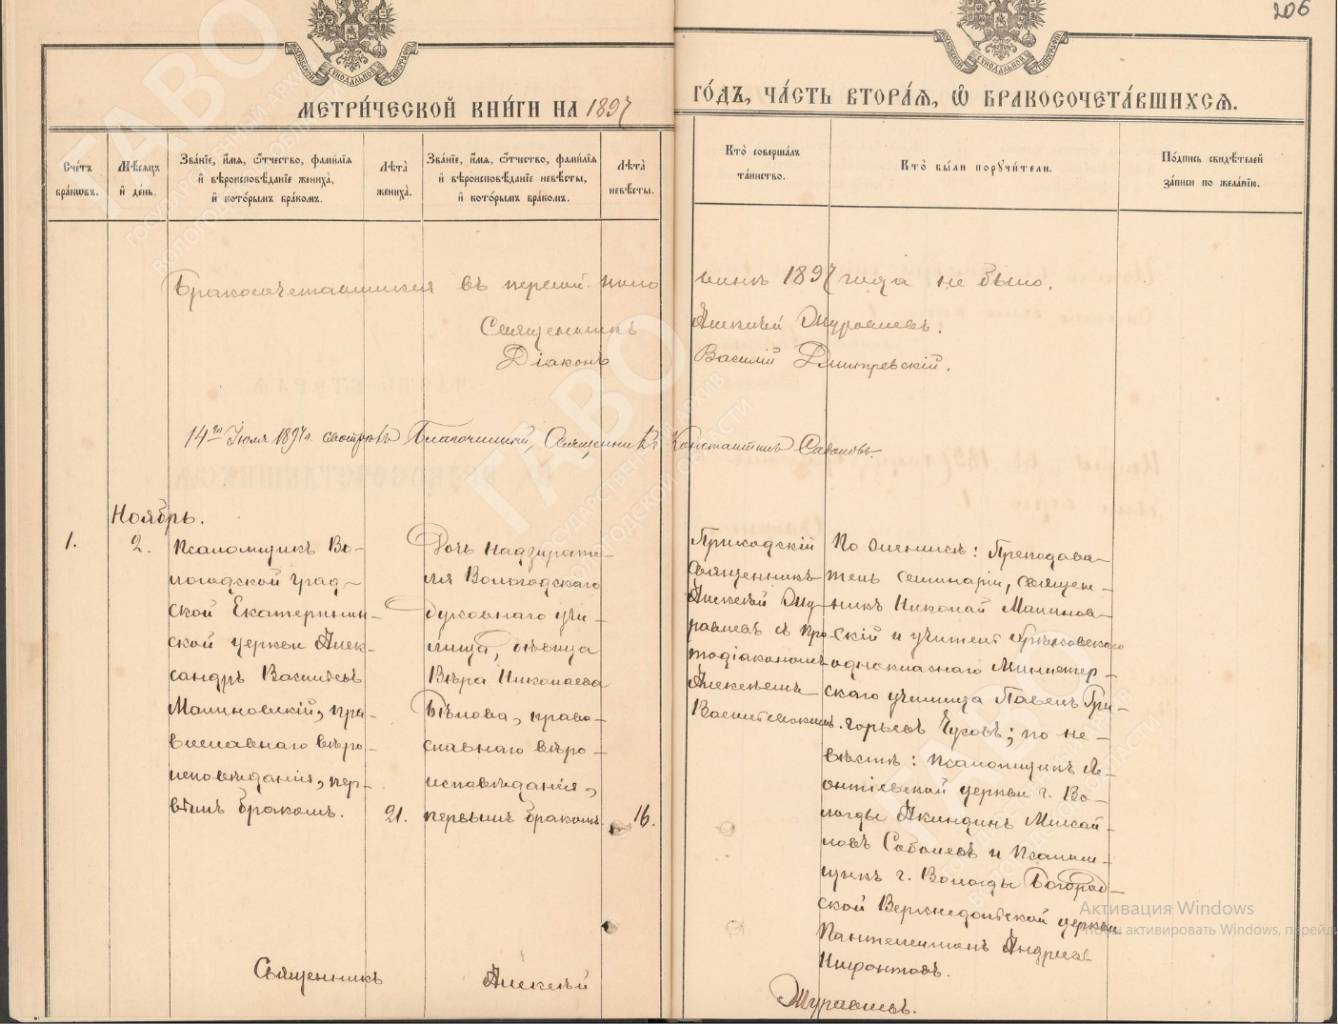 206
МЕТРИ́ЧЕСКОЙ КНИ́ГИ НА 1897
ГО́ДЪ, ЧА́СТЬ ВТОРА́Я, Ѽ БРАКОСОЧЕТА́ВШИХСЯ.
Сче́тъ
бра́ковъ.
Мѣ́сяцъ
и҆ де́нь.
Зва́нїе, и҆́мя, ѻ҆́тчество, фами́лїя
и҆ вѣроисповѣ́данїе жениха̀,
и҆ кото́рымъ бра́комъ.
Лѣ́та
жениха̀.
Зва́нїе, и҆́мя, ѻ҆́тчество, фами́лїя
и҆ вѣроисповѣ́данїе невѣ́сты,
и҆ кото́рымъ бра́комъ.
Лѣ́та
невѣ́сты.
Кто̀ соверша́лъ
та́инство.
Кто̀ бы́ли порꙋчи́тели.
По́дпись свидѣ́телей
за́писи по жела́нїю.
Бракосочетавшихся въ первой поло
винѣ 1897 года не было.
Священникъ Алексѣй Журавлевъ.
Діаконъ Василій Дмитревскій.
14го Іюля 1897 г. смотрѣлъ Благочинный, Священникъ Константинъ
Ноябрь.
1.
2.
Псаломщикъ Во-
логодской град-
ской Екатеринин-
ской церкви Алек-
сандръ Васильевъ
Малиновскій, пра-
вославнаго вѣро-
исповѣданія, пер-
вымъ бракомъ.
21.
Дочь надзирате-
ля Вологодскаго
духовнаго учи-
лища, дѣвица
Вѣра Николаева
Бѣлова, право-
славнаго вѣро-
исповѣданія,
первымъ бракомъ
16.
Приходскій
священникъ
Алексѣй Жу-
равлевъ съ про-
тодіакономъ
Алексѣемъ
Васильевскимъ.
По женихѣ: Преподава-
тель семинаріи, священ-
никъ Николай Малинов-
скій и учитель
однокласнаго Министер-
скаго училища Павелъ Гри-
горьевъ Чусовъ; по не-
вѣстѣ: псаломщикъ Ле-
онтіевской церкви г. Во-
логды Акиндинъ Михай-
ловъ Соболевъ и псалом-
щикъ г. Вологды Богород-
ской Верхнедольской церкви
Пантелеимонъ Андреевъ
Нифонтовъ.
Священникъ Алексѣй Журавлевъ.
ГАВО
ГОСУДАРСТВЕННЫЙ АРХИВ
ВОЛОГОДСКОЙ ОБЛАСТИ
ГАВО
ГОСУДАРСТВЕННЫЙ АРХИВ
ВОЛОГОДСКОЙ ОБЛАСТИ
ГАВО
Активация Windows
активировать Windows, перейд